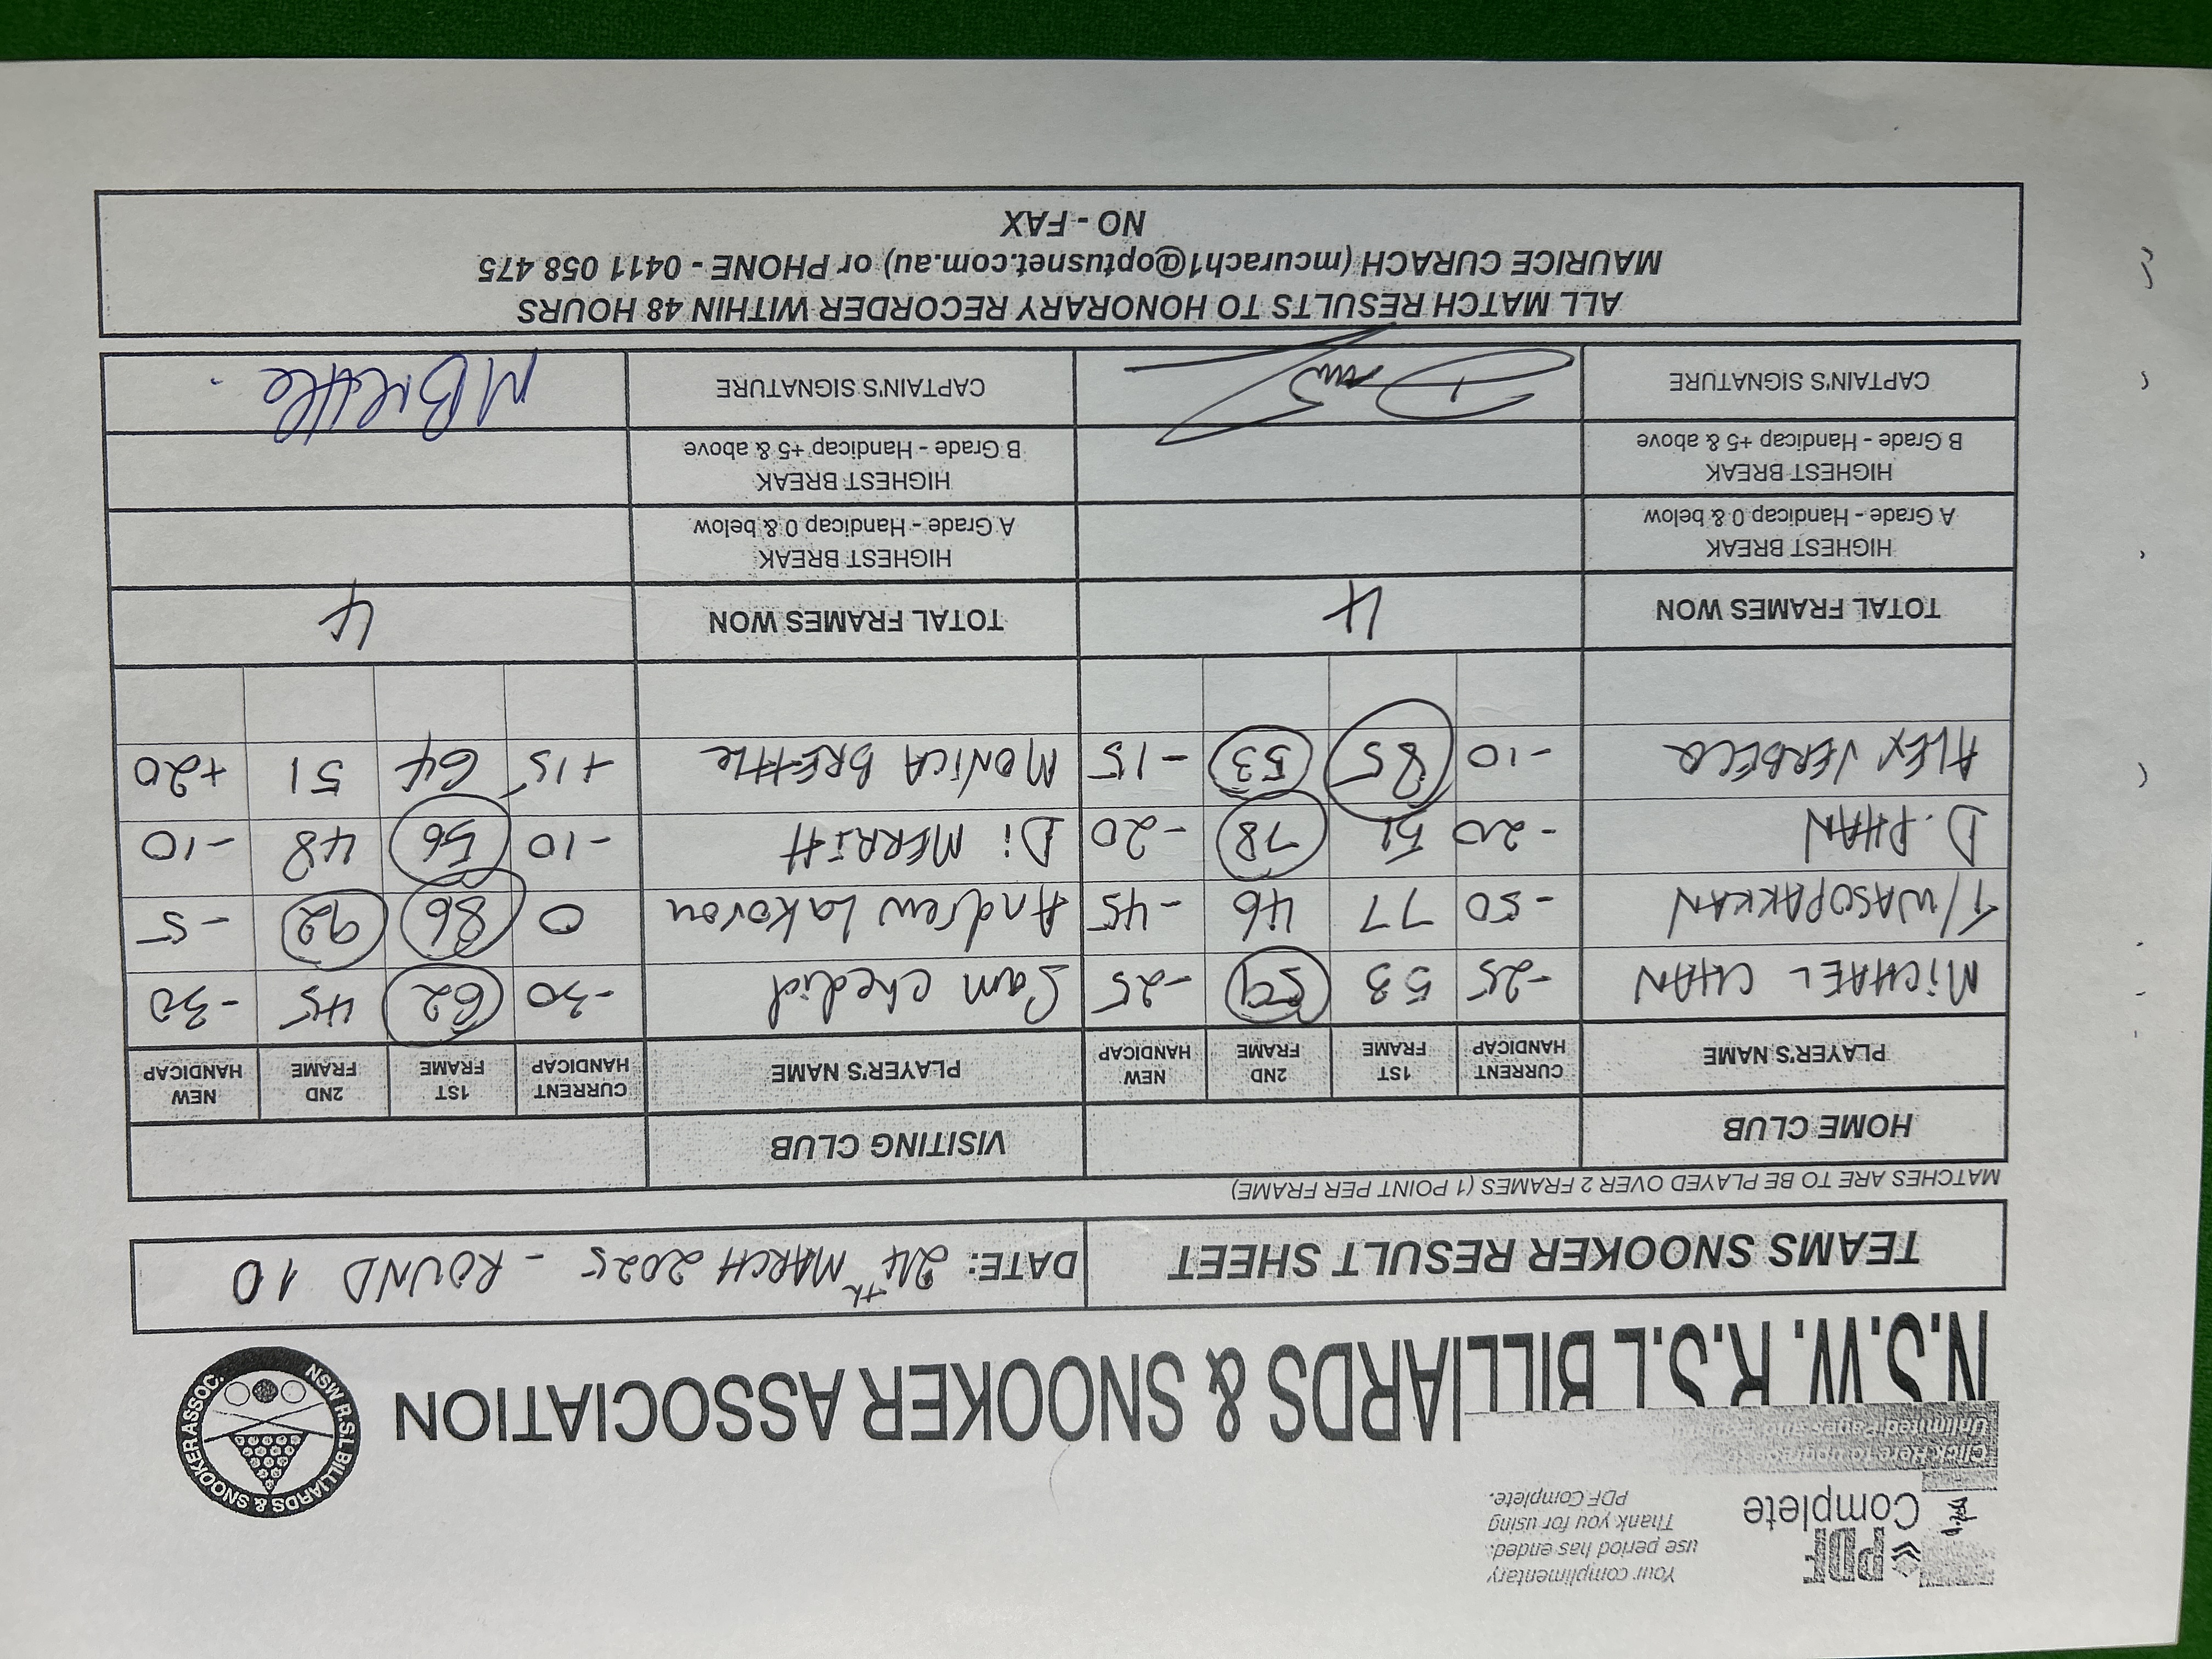 PDF
Complete
Your complimentary
use period has ended.
Thank you for using
PDF Complete.
Click Here to upgrade
Unlimited Pages and
N.S.W. R.S.L BILLIARDS & SNOOKER ASSOCIATION
NSW R.S.L BILLIARDS & SNOOKER ASSOC.
TEAMS SNOOKER RESULT SHEET DATE: 24th MARCH 2025 - ROUND 10
MATCHES ARE TO BE PLAYED OVER 2 FRAMES (1 POINT PER FRAME)
HOME CLUB VISITING CLUB
PLAYER'S NAME CURRENT HANDICAP 1ST FRAME 2ND FRAME NEW HANDICAP PLAYER'S NAME CURRENT HANDICAP 1ST FRAME 2ND FRAME NEW HANDICAP
MICHAEL CHAN -25 53 59 -25 Sam Chedid -30 62 45 -30
T/WASOPAKKAN -50 77 46 -45 Andrew Lakovou 0 86 92 -5
D. PHAN -20 51 78 -20 Di MERRITT -10 56 48 -10
ALEX VERBECQ -10 85 53 -15 MONICA BRETTLE +15 64 51 +20
TOTAL FRAMES WON 4 TOTAL FRAMES WON 4
HIGHEST BREAK HIGHEST BREAK
A Grade - Handicap 0 & below A Grade - Handicap 0 & below
HIGHEST BREAK HIGHEST BREAK
B Grade - Handicap +5 & above B Grade - Handicap +5 & above
CAPTAIN'S SIGNATURE CAPTAIN'S SIGNATURE M Brettle.
ALL MATCH RESULTS TO HONORARY RECORDER WITHIN 48 HOURS
MAURICE CURACH (mcurach1@optusnet.com.au) or PHONE - 0411 058 475
NO - FAX